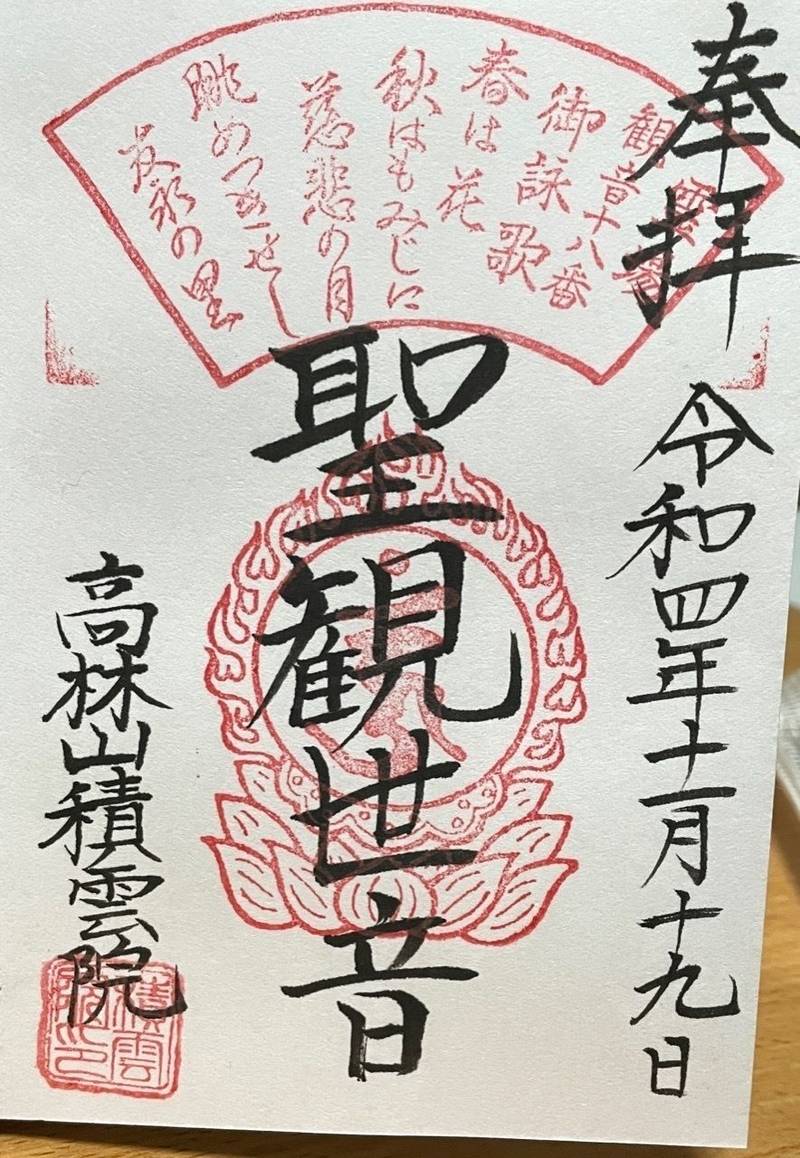 奉拝
令和四年十一月十九日
観音十八番
御詠歌
春は花
秋はもみじに
慈悲の月
眺めつきせし
友永の里
聖観世音
高林山積雲院
積雲
院印